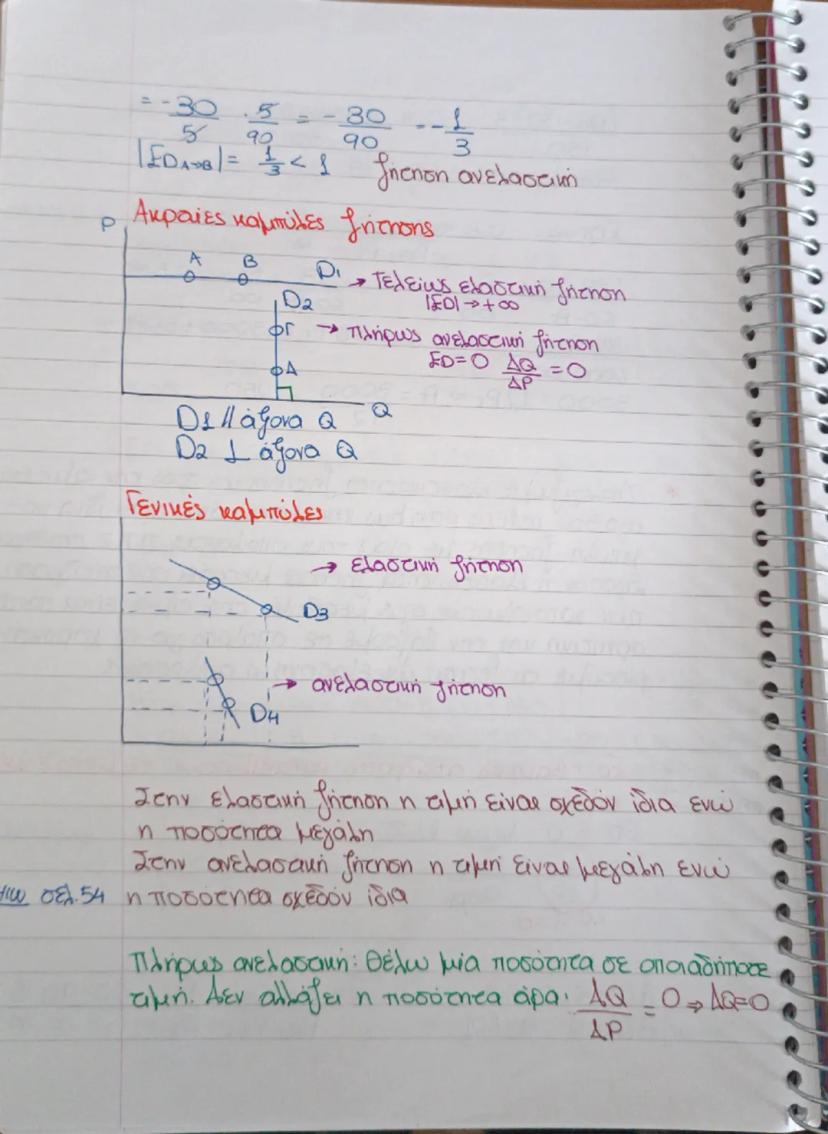 = -30/5 · 5/90 = -30/90 = -1/3
|ED A→B| = 1/3 < 1 ζήτηση ανελαστική
Ακραίες καμπύλες ζήτησης
P
A B D1 → Τελείως ελαστική ζήτηση
|ED| → +∞
D2
Γ → πλήρως ανελαστική ζήτηση
Δ ED=0 ΔQ/ΔP = 0
Q
D1 // άξονα Q
D2 ⊥ άξονα Q
Γενικές καμπύλες
→ ελαστική ζήτηση
D3
→ ανελαστική ζήτηση
D4
Στην ελαστική ζήτηση η τιμή είναι σχεδόν ίδια ενώ
η ποσότητα μεγάλη
Στην ανελαστική ζήτηση η τιμή είναι μεγάλη ενώ
σελ. 54 η ποσότητα σχεδόν ίδια
Πλήρως ανελαστική: Θέλω μία ποσότητα σε οποιαδήποτε
τιμή. Δεν αλλάζει η ποσότητα άρα: ΔQ/ΔP = 0 ⇒ ΔQ=0